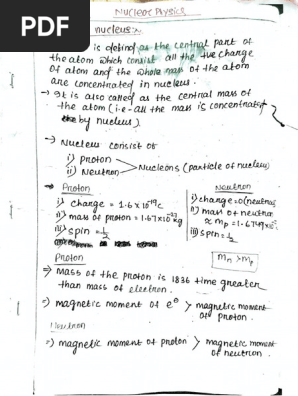 PDF
Nucleor Physics
nucleus:~
is defined as the central part of
the atom which consist all the +ve charge
of atom and the whole mass of the atom
are concentrated in nucleus.
→ It is also called as the central mass of
the atom (i.e-all the mass is concentrated
by nucleus)
→ Nucleus consist of
i) proton
ii) Neutron
Nucleons (particle of nucleus)
⇒ Proton
i) charge = 1.6×10⁻¹⁹c
ii) mass of proton = 1.67×10⁻²⁷ kg
iii) spin = 1/2
Neutron
i) charge = 0 (neutral
ii) mass of neutron
≈ mp = 1.6749×10⁻²⁷
iii) spin = 1/2
mn > mp
Proton
⇒ mass of the proton is 1836 time greater
than mass of electron.
⇒ magnetic moment of e⊖ > magnetic moment
of proton.
Neutron
⇒ magnetic moment of proton > magnetic moment
of neutron.